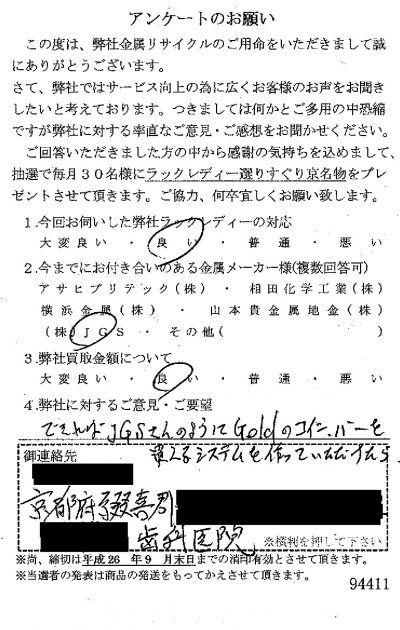 アンケートのお願い
この度は、弊社金属リサイクルのご用命をいただきまして誠
にありがとうございます。
さて、弊社ではサービス向上の為に広くお客様のお声をお聞き
したいと考えております。つきましては何かとご多用の中恐縮
ですが弊社に対する率直なご意見・ご感想をお聞かせください。
ご回答いただきました方の中から感謝の気持ちを込めまして、
抽選で毎月30名様にラックレディー選りすぐり京名物をプレ
ゼントさせて頂きます。ご協力、何卒宜しくお願い致します。
1.今回お伺いした弊社ラックレディーの対応
大変良い・良い・普通・悪い
2.今までにお付き合いのある金属メーカー様(複数回答可)
アサヒプリテック(株)・相田化学工業(株)
横浜金属(株)・山本貴金属地金(株)
(株)JGS・その他( )
3.弊社買取金額について
大変良い・良い・普通・悪い
4.弊社に対するご意見・ご要望
できれば JGSさんのように Goldのコイン、バーを
買えるシステムを作っていただけたら
御連絡先
京都府綴喜郡
歯科医院
※横判を押して下さい
※尚、締切は平成26年9月末日までの消印有効とさせて頂きます。
※当選者の発表は商品の発送をもってかえさせて頂きます。
94411